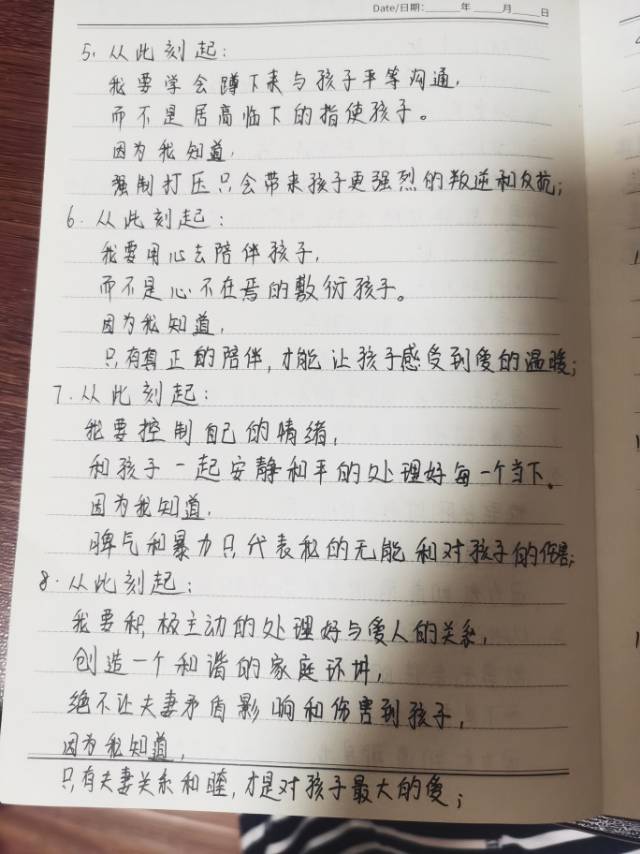 Date/日期:______年____月____日
5. 从此刻起:
我要学会蹲下来与孩子平等沟通,
而不是居高临下的指使孩子。
因为我知道,
强制打压只会带来孩子更强烈的叛逆和反抗;
6. 从此刻起:
我要用心去陪伴孩子,
而不是心不在焉的敷衍孩子。
因为我知道,
只有真正的陪伴,才能让孩子感受到爱的温暖;
7. 从此刻起:
我要控制自己的情绪,
和孩子一起安静和平的处理好每一个当下。
因为我知道,
脾气和暴力只代表私的无能和对孩子的伤害;
8. 从此刻起;
我要积极主动的处理好与爱人的关系,
创造一个和谐的家庭环境,
绝不让夫妻矛盾影响和伤害到孩子,
因为我知道,
只有夫妻关系和睦,才是对孩子最大的爱;